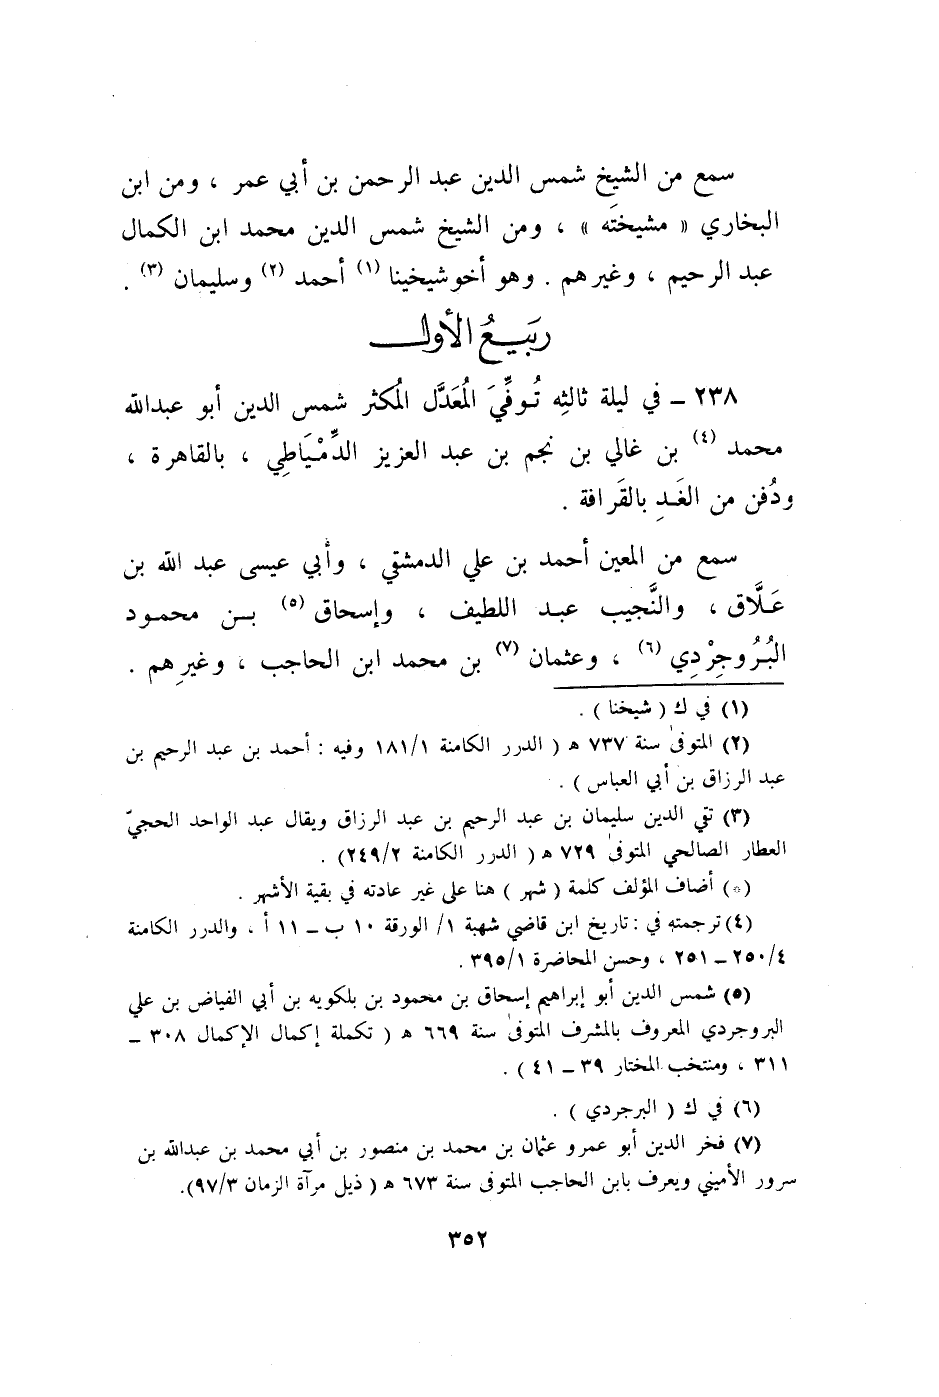 سمع من الشيخ شمس الدين عبد الرحمن بن أبي عمر ، ومن ابن
البخاري « مشيختَه » ، ومن الشيخ شمس الدين محمد ابن الكمال
عبد الرحيم ، وغيرهم . وهو أخو شيخينا (١) أحمد (٢) وسليمان (٣) .
ربيعُ الأول
٢٣٨ ــ في ليلة ثالثِه تُوفِّيَ المُعَدَّل المُكثر شمس الدين أبو عبدالله
محمد (٤) بن غالي بن نجم بن عبد العزيز الدِّمْيَاطِي ، بالقاهرة ،
ودُفن من الغَدِ بالقَرافة .
سمع من المعين أحمد بن علي الدمشقي ، وأبي عيسى عبد الله بن
عَلَّاق ، والنَّجيب عبد اللطيف ، وإسحاق (٥) بن محمود
البُرُوجِرْدِي (٦) ، وعثمان (٧) بن محمد ابن الحاجب ، وغيرِهم .
(١) في ك ( شيخنا ) .
(٢) المتوفى سنة ٧٣٧ ه ( الدرر الكامنة ١٨١/١ وفيه : أحمد بن عبد الرحيم بن
عبد الرزاق بن أبي العباس ) .
(٣) تقي الدين سليمان بن عبد الرحيم بن عبد الرزاق ويقال عبد الواحد الحجيّ
العطار الصالحي المتوفى ٧٢٩ ه ( الدرر الكامنة ٢٤٩/٢) .
(*) أضاف المؤلف كلمة ( شهر ) هنا على غير عادته في بقية الأشهر .
(٤) ترجمته في : تاريخ ابن قاضي شهبة ١/ الورقة ١٠ ب ــ ١١ أ ، والدرر الكامنة
٢٥٠/٤ ــ ٢٥١ ، وحسن المحاضرة ٣٩٥/١ .
(٥) شمس الدين أبو إبراهيم إسحاق بن محمود بن بلكويه بن أبي الفياض بن علي
البروجردي المعروف بالمشرف المتوفى سنة ٦٦٩ ه ( تكملة إكمال الإكمال ٣٠٨ ــ
٣١١ ، ومنتخب المختار ٣٩ ــ ٤١ ) .
(٦) في ك ( البرجردي ) .
(٧) فخر الدين أبو عمرو عثمان بن محمد بن منصور بن أبي محمد بن عبدالله بن
سرور الأميني ويعرف بابن الحاجب المتوفى سنة ٦٧٣ ه ( ذيل مرآة الزمان ٩٧/٣).
٣٥٢